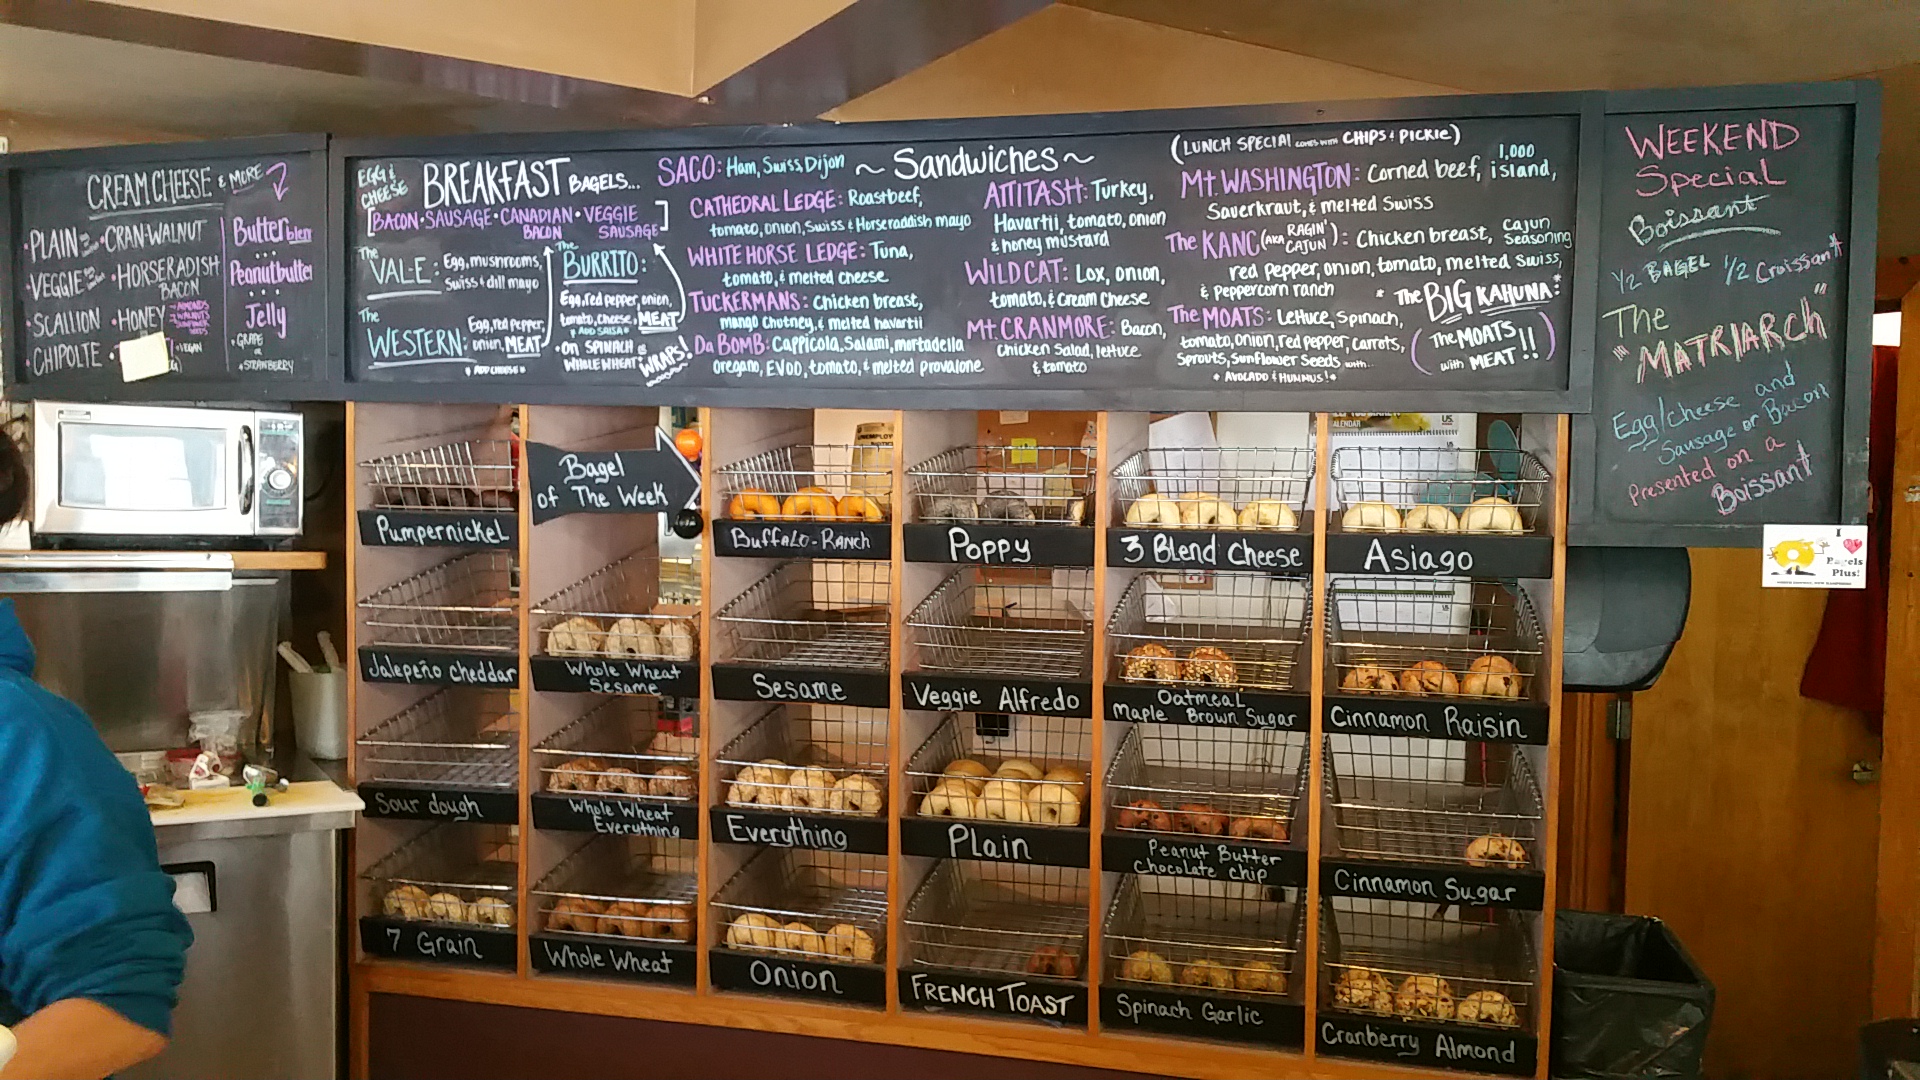 CREAM CHEESE & MORE
PLAIN
CRAN-WALNUT
VEGGIE
HORSERADISH
BACON
SCALLION
HONEY
ALMONDS
WALNUTS
SUNFLOWER
SEEDS
CHIPOLTE
VEGAN
Butter blend
Peanutbutter
Jelly
GRAPE
or
STRAWBERRY
EGG &
CHEESE
BREAKFAST BAGELS...
[BACON · SAUSAGE · CANADIAN BACON · VEGGIE SAUSAGE]
The VALE: Egg, mushrooms,
Swiss & dill mayo
The WESTERN: Egg, red pepper,
onion, MEAT
* ADD CHEESE *
The BURRITO:
Egg, red pepper, onion,
tomato, cheese, MEAT
* ADD SALSA *
• On SPINACH or
WHOLEWHEAT WRAPS!
~ Sandwiches ~
SACO: Ham, Swiss, Dijon
CATHEDRAL LEDGE: Roastbeef,
tomato, onion, Swiss & Horseraddish mayo
WHITE HORSE LEDGE: Tuna,
tomato, & melted cheese
TUCKERMANS: Chicken breast,
mango chutney, & melted havartii
Da BOMB: Cappicola, Salami, mortadella
oregano, EVOO, tomato, & melted provalone
ATTITASH: Turkey,
Havartii, tomato, onion
& honey mustard
WILDCAT: Lox, onion,
tomato, & Cream Cheese
Mt. CRANMORE: Bacon,
Chicken Salad, lettuce
& tomato
(LUNCH SPECIAL comes with CHIPS & PICKLE)
Mt. WASHINGTON: Corned beef, 1,000 island,
Sauerkraut, & melted Swiss
The KANC (AKA RAGIN' CAJUN): Chicken breast, Cajun Seasoning
red pepper, onion, tomato, melted Swiss,
& peppercorn ranch
The MOATS: Lettuce, Spinach,
tomato, onion, red pepper, carrots,
Sprouts, Sunflower Seeds with...
* AVOLADO & HUMMUS! *
* The BIG KAHUNA: *
(The MOATS
with MEAT!!)
WEEKEND
Special
Boissant
1/2 BAGEL 1/2 Croissant
The
"MATRIARCH"
Egg/cheese and
Sausage or Bacon
presented on a
Boissant
I
Bagels
Plus!
Bagel
of The Week
UNEMPLOY
CALENDAR
Pumpernickel
Buffalo-Ranch
Poppy
3 Blend Cheese
Asiago
Jalepeño cheddar
Whole Wheat
Sesame
Sesame
Veggie Alfredo
Oatmeal
Maple Brown Sugar
Cinnamon Raisin
Sour dough
Whole Wheat
Everything
Everything
Plain
Peanut Butter
Chocolate chip
Cinnamon Sugar
7 Grain
Whole Wheat
Onion
FRENCH TOAST
Spinach Garlic
Cranberry Almond